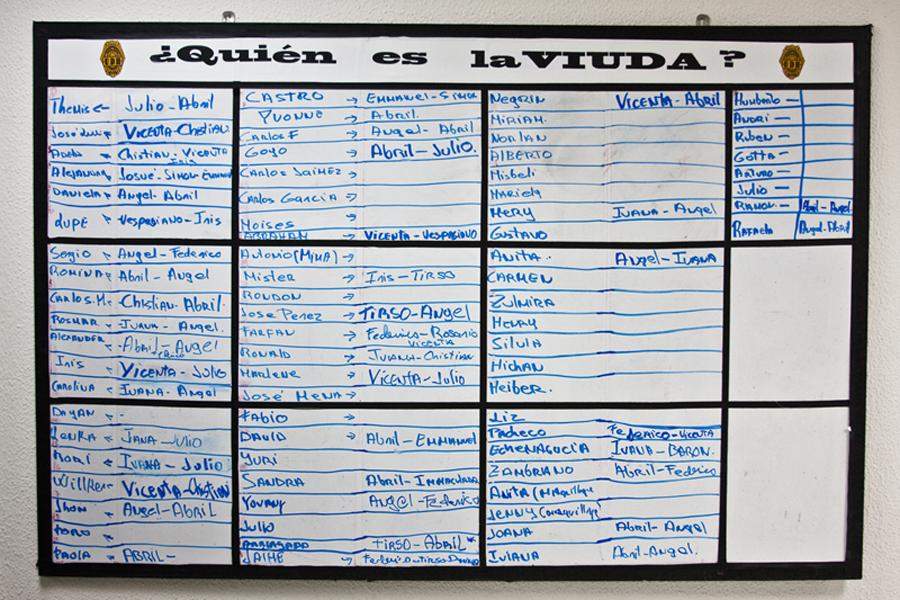 ¿Quién es la VIUDA?
Themis Julio - Abril
VICENTA - Christian
Adela Christian - Vicenta
Alejandra Josué - Simon - Emmanuel
Daniela Angel - Abril
LUPE VESPASIANO - Inis
Sergio Angel - Federico
ROMINA Abril - Angel
CARLOS.M. Christian - Abril
ROSMAR IUANA - Angel
ALEXANDER Abril - Angel
Inis VICENTA - Julio
Carolina IUANA - Angel
DAYAN -
JANA - Julio
IUANA - Julio
VICENTA - Christian
Jhon Angel - ABRIL
PAOLA ABRIL -
CASTRO → EMMANUEL - SIMON
YVONNE → Abril
CARLOS F → Angel - Abril
GOYO Abril - JULIO.
CARLOS JAIMEZ →
Carlos Garcia →
Moises →
ABRAHAM → VICENTA - VESPASIANO
Antonio (MIMA) →
Mister → Inis - TIRSO
RONDON →
Jose Perez → TIRSO - Angel
FARFAN → Federico - Rosario
VICENTA
Ronald → JUANA - Christian
Marlene → VICENTA - Julio
José MENA →
FABIO →
DAVID → Abril - EMMANUEL
YURI
SANDRA Abril - Inmaculada
YOVANY Angel - Federico
Julio
TIRSO - Abril
JAIME →
Negrin VICENTA - ABRIL
MIRIAM.
NORIAN
ALBERTO
Misbeli
Mariela
MERY IUANA - Angel
GUSTAVO
ANITA. Angel - IUANA
CARMEN
ZULMIRA
HENRY
Silvia
Michan
Heiber.
LIZ
Pacheco Federico - VICENTA
ECHENAGUCIA IUANA - BARON.
ZAMBRANO Abril - Federico
ANITA (Maquillaje
JENNY (maquillaje)
JOANA Abril - Angel
IUIANA Abril - Angel.
Humberto —
Andri —
Ruben —
Gotta —
Arturo —
Julio —
RAMON — Abril - Angel
Rafaela Angel - Abril